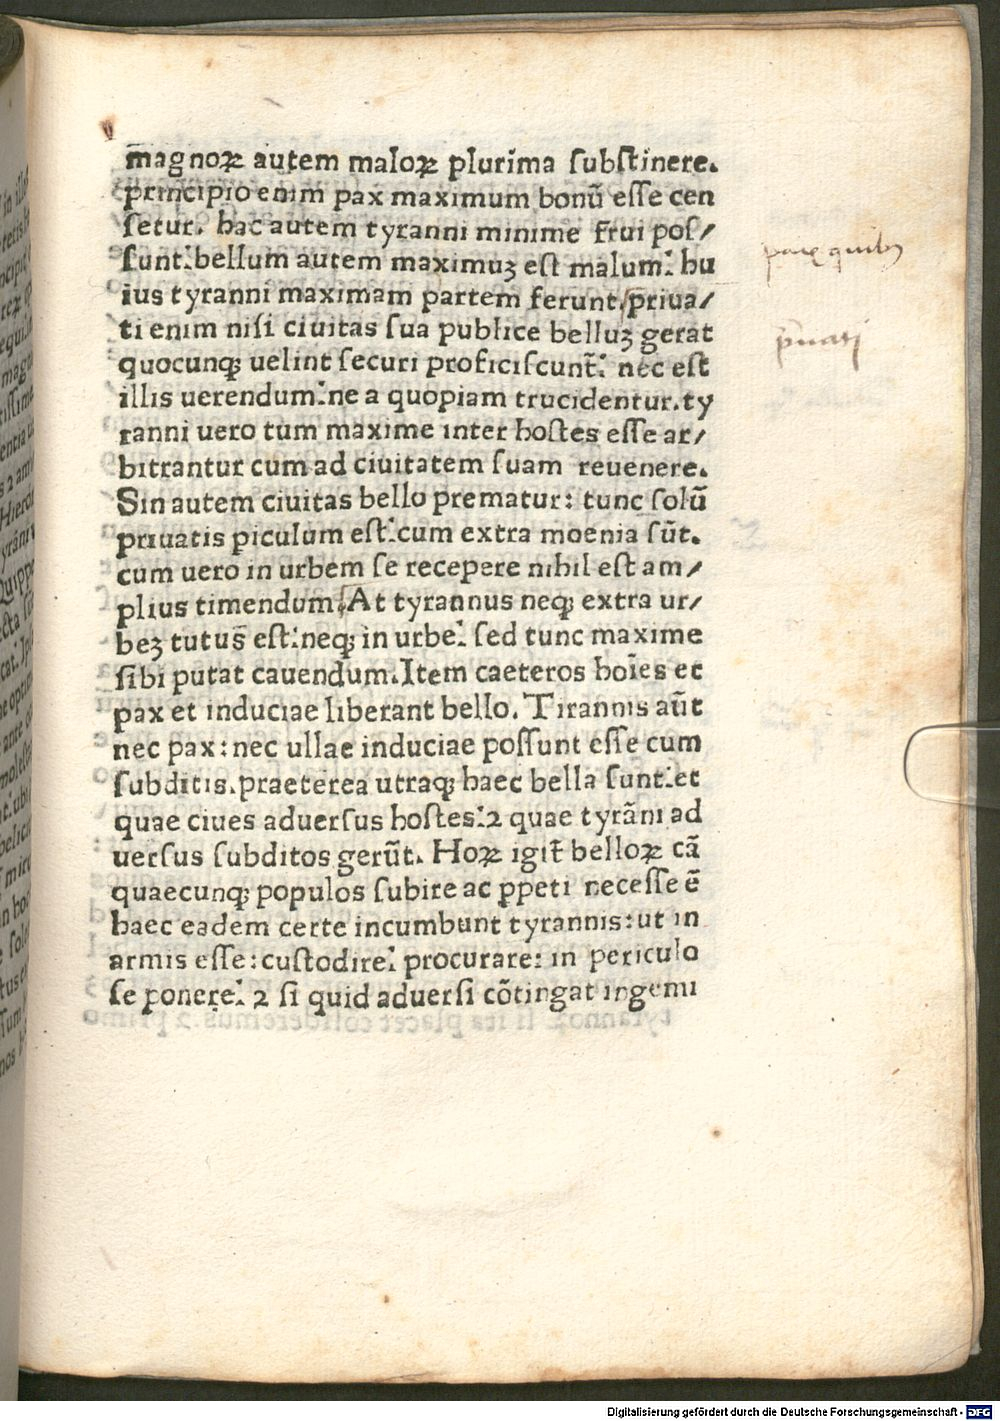 magnoꝝ autem maloꝝ plurima ſubſtinere.
principio enim pax maximum bonū eſſe cen
ſetur. hac autem tyranni minime frui poſ/
ſunt: bellum autem maximuꝫ eſt malum: hu
ius tyranni maximam partem ferunt. priua/
ti enim niſi ciuitas ſua publice belluꝫ gerat
quocunqꝫ uelint ſecuri proficiſcunt̃: nec eſt
illis uerendum: ne a quopiam trucidentur. ty
ranni uero tum maxime inter hoſtes eſſe ar/
bitrantur cum ad ciuitatem ſuam reuenere.
Sin autem ciuitas bello prematur: tunc ſolū
priuatis piculum eſt: cum extra moenia ſūt.
cum uero in urbem ſe recepere nihil eſt am/
plius timendum. At tyrannus neqꝫ extra ur/
beꝫ tutus eſt: neqꝫ in urbe: ſed tunc maxime
ſibi putat cauendum. Item caeteros hoīes et
pax et induciae liberant bello. Tirannis aūt
nec pax: nec ullae induciae poſſunt eſſe cum
ſubditis. praeterea utraqꝫ haec bella ſunt: et
quae ciues aduerſus hoſtes: ⁊ quae tyrāni ad
uerſus ſubditos gerūt. Hoꝝ igit̃ belloꝝ cā
quaecunqꝫ populos ſubire ac ꝑpeti neceſſe ē
haec eadem certe incumbunt tyrannis: ut in
armis eſſe: cuſtodire: procurare: in periculo
ſe ponere: ⁊ ſi quid aduerſi cōtingat ingemi
pax quibꝰ
p̄uati
Digitalisierung gefördert durch die Deutsche Forschungsgemeinschaft - DFG